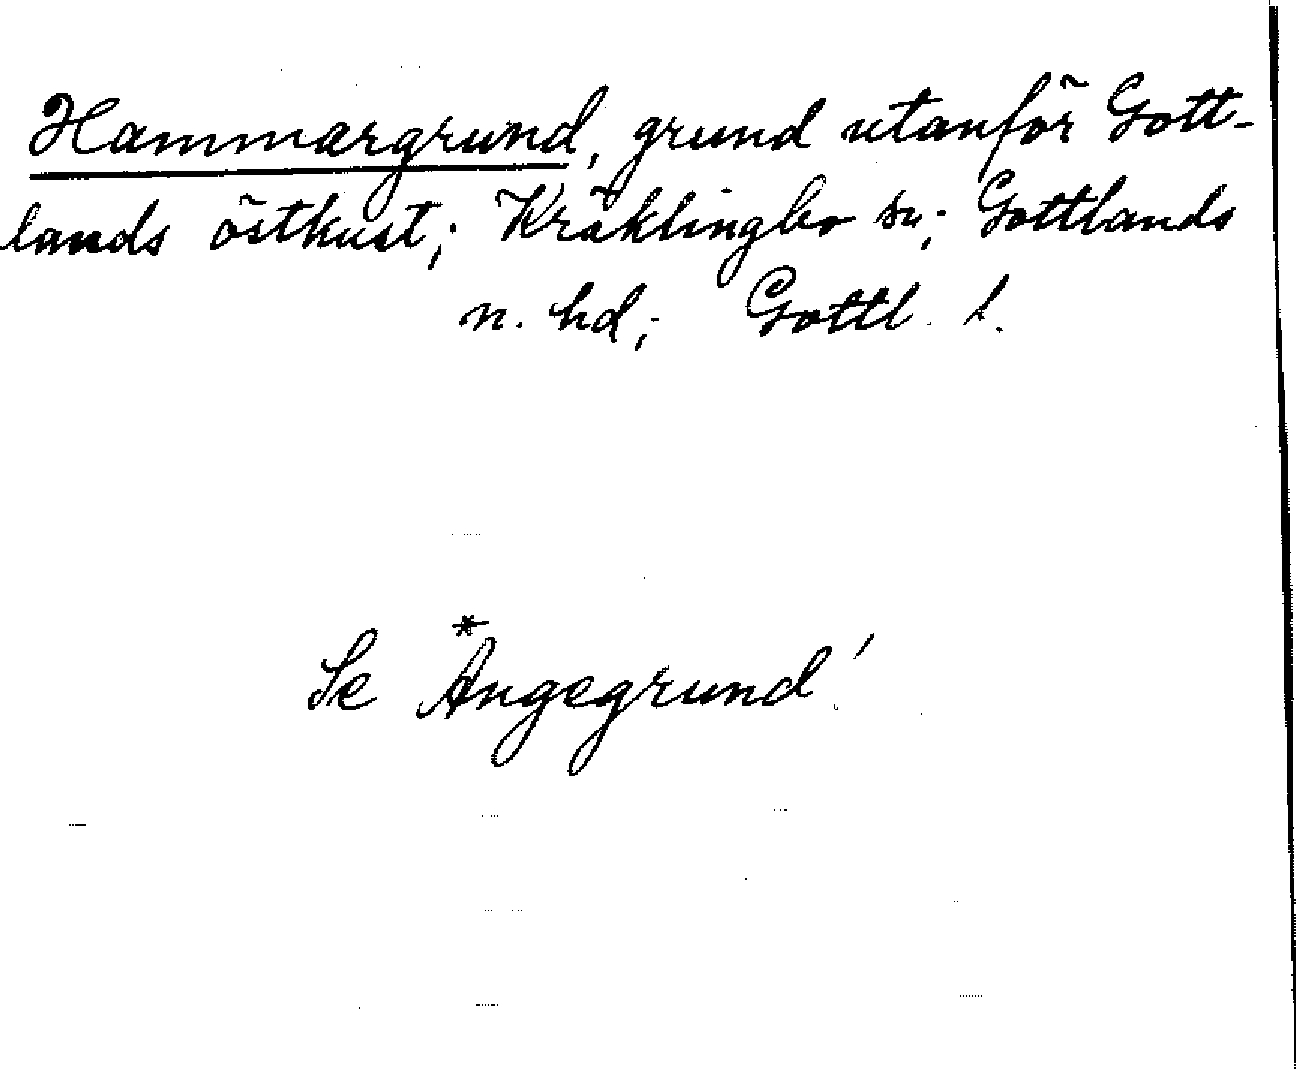 Hammargrund, grund utanför Gott-
lands östkust; Kräklingbo sn; Gottlands
n. hd; Gottl. l.
Se *Ängegrund!